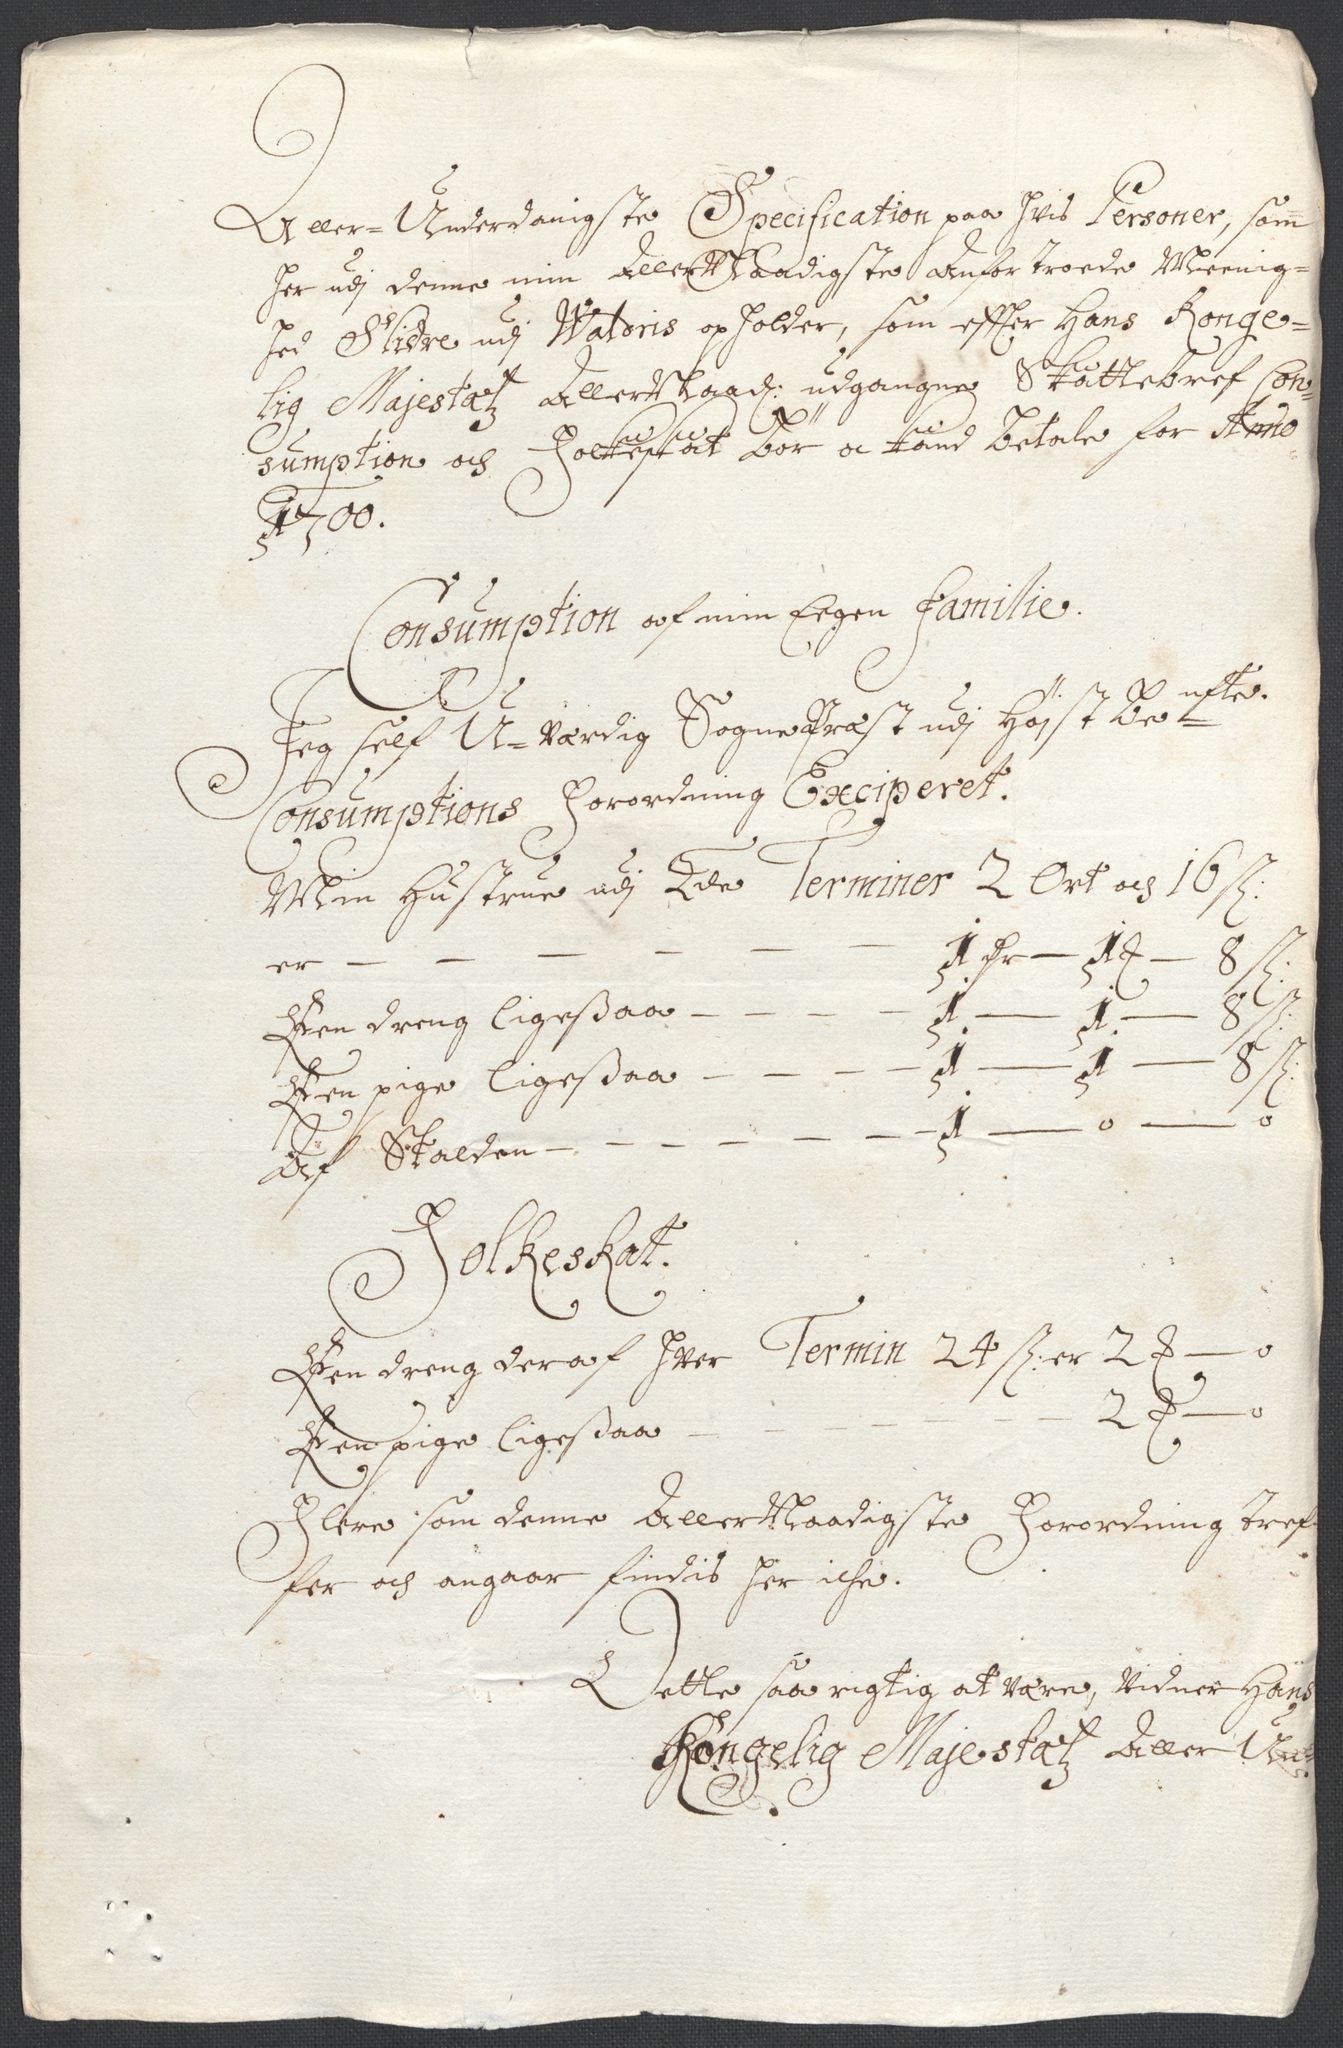 Aller-Underdanigste Specification paa hvis Personer, som
her udj denne min AllerNaadigste Anfortroede Meenig=
hed Slidre udj Waldris opholder, som effter Hans Konge=
lig Majestatz AllerNaad: udgangne Skattebref Con=
sumption och Folkeskat bör betale for Anno
1700.
Consumption af min Eegen Familie.
Jeg self U=værdig SognePræst udj Höjst Be=nfte.
Consumptions Forordning Exciperet.
Min Hustrue udj Tde Terminer 2 Ort och 16 ß:
er — — — — — — 1 — 1 — 8 ß:
Een dreng ligeßaa — — — — 1. — 1. — 8 ß:
Een pige ligeßaa — — — — 1 — 1 — 8 ß:
Af Skalden — — — — — — 1 — 0 — 0
Folkeskat.
Een dreng deraf hver Termin 24 ß: er 2 — 0
Een pige ligeßaa — — — — — 2 — 0
Flere som denne AllerNaadigste Forordning tref=
fer och angaar findis her iche.
Dette saa rigtig at være, Vidner Hans
Kongelig Majestatz Aller Un=